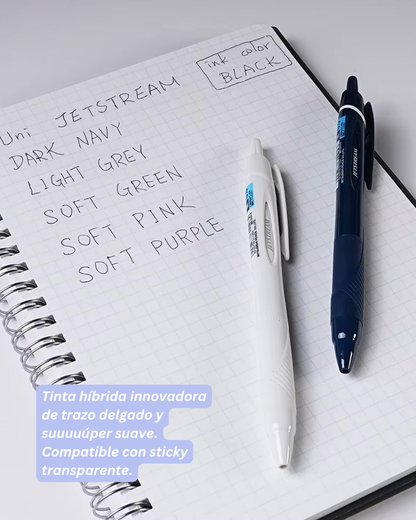 ink color
BLACK
Uni JETSTREAM
DARK NAVY
LIGHT GREY
SOFT GREEN
SOFT PINK
SOFT PURPLE
JETSTREAM
Tinta híbrida innovadora
de trazo delgado y
suuuuúper suave.
Compatible con sticky
transparente.